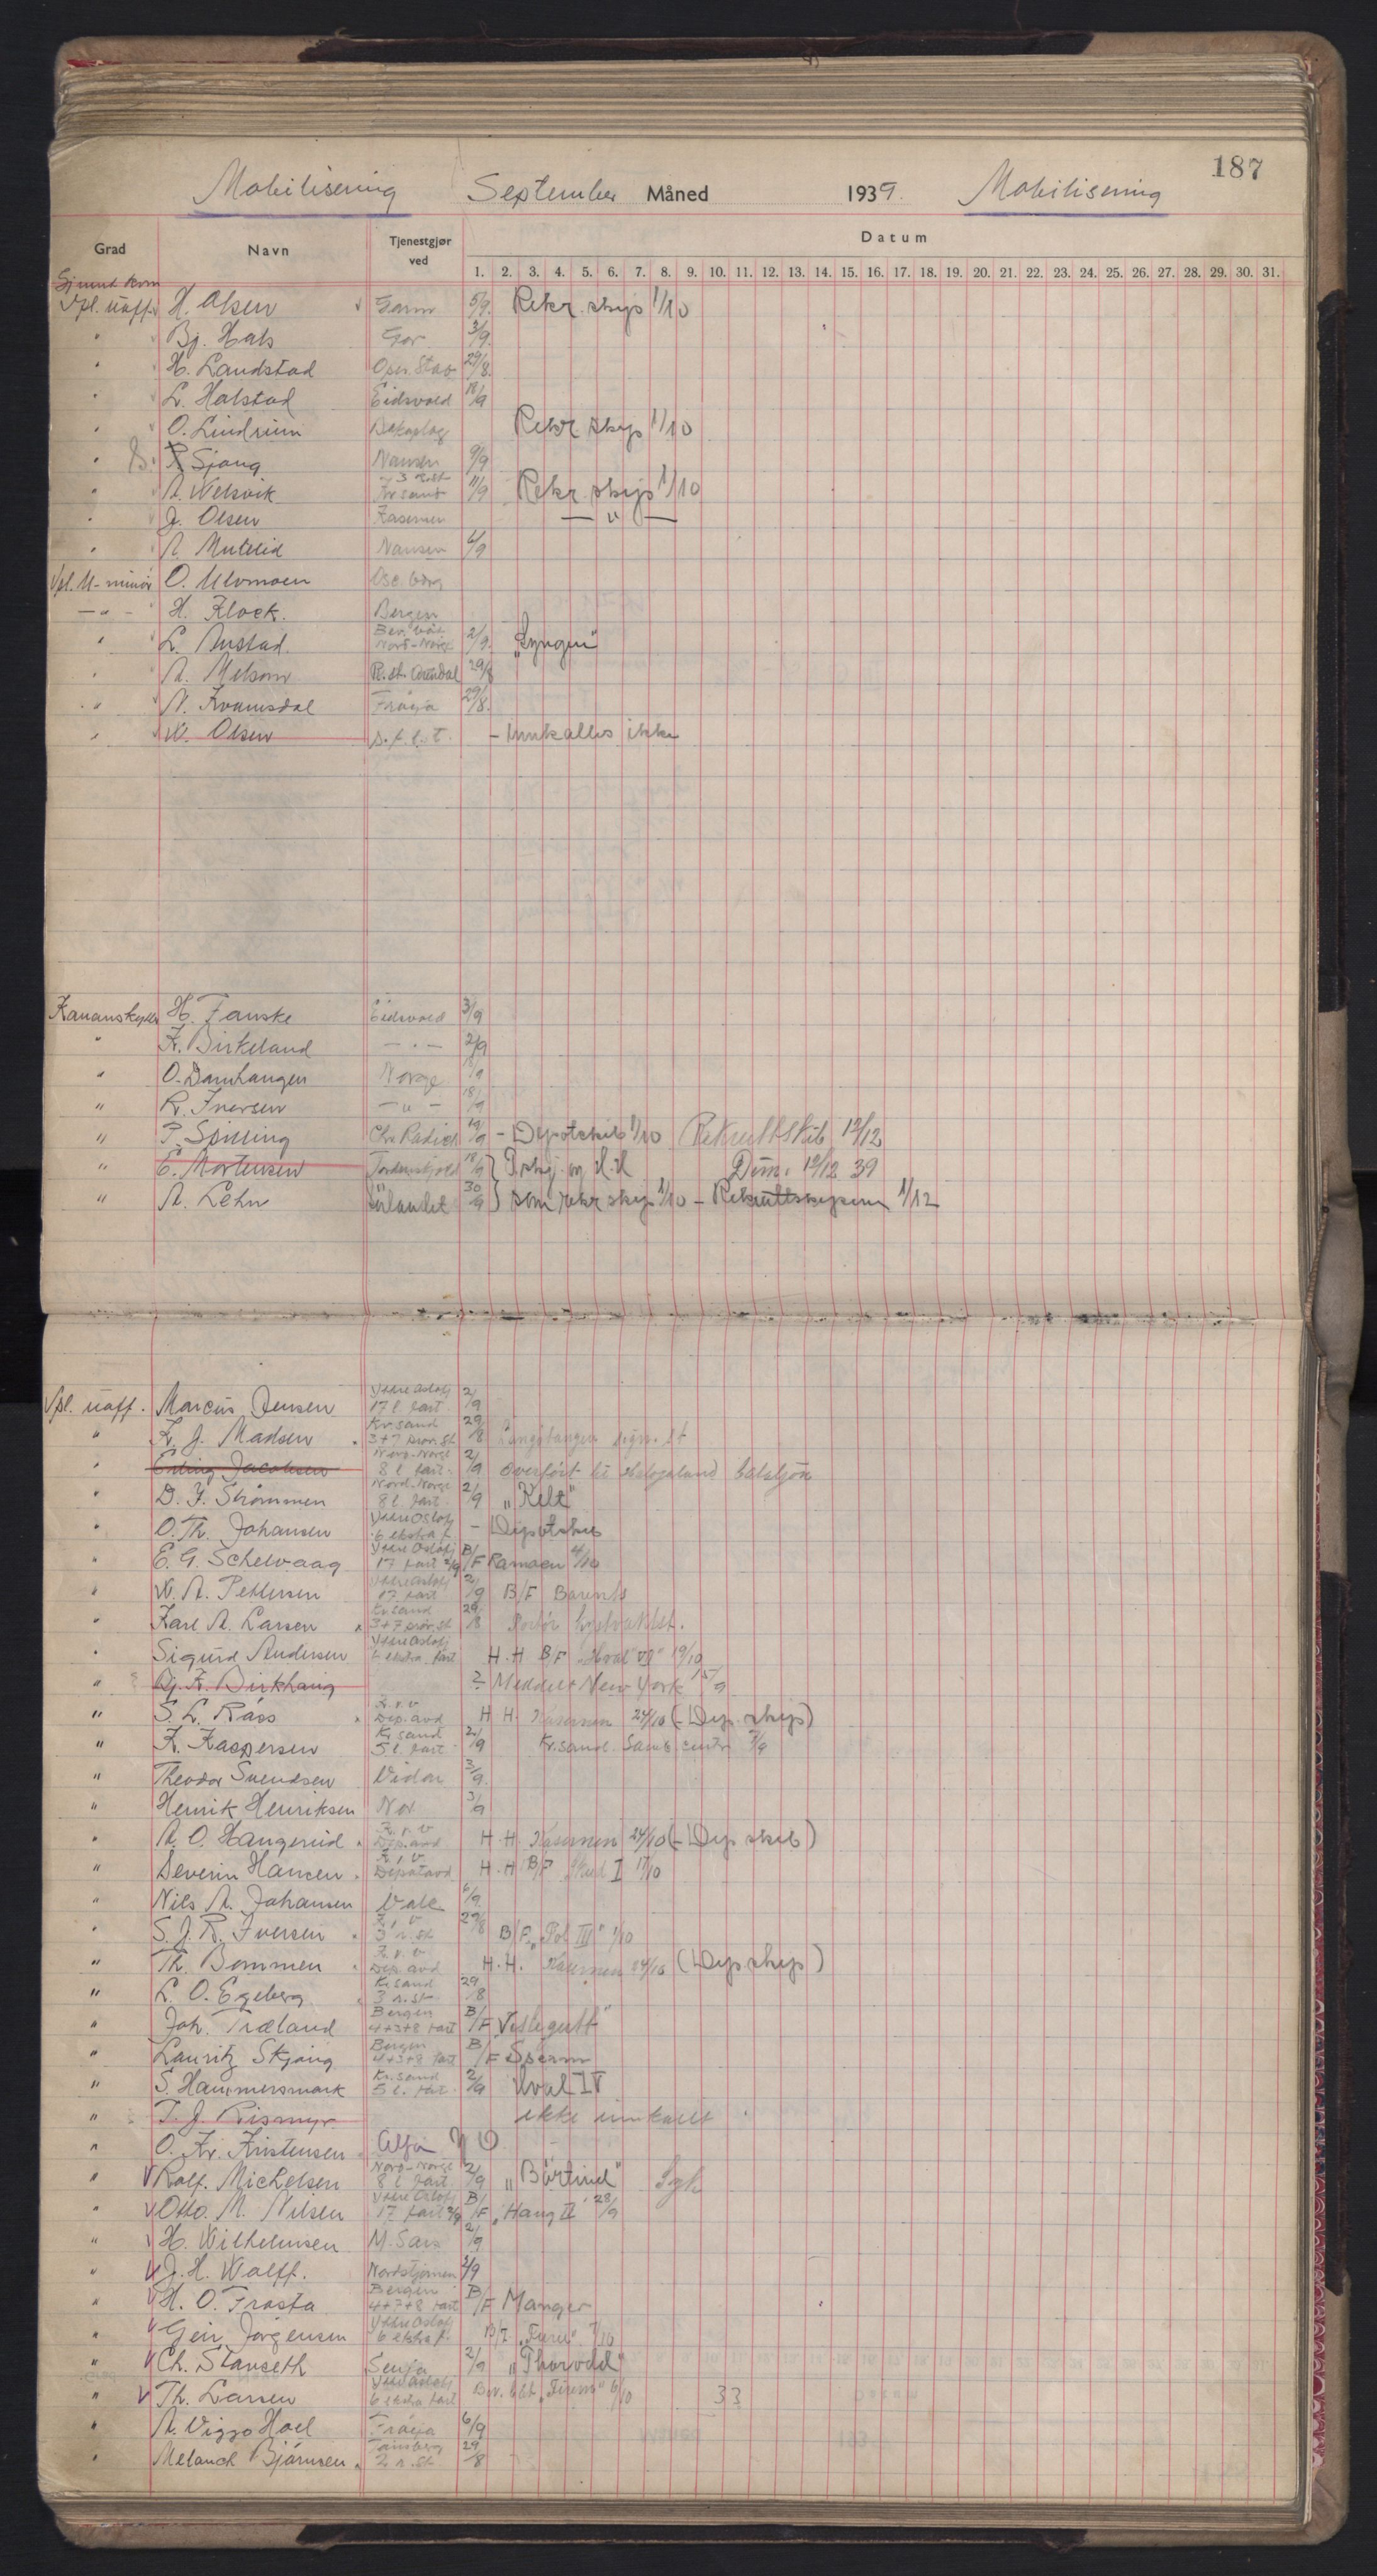 187
Mobilisering September Måned 1939. Mobilisering
Grad Navn Tjenestgjør ved Datum
1. 2. 3. 4. 5. 6. 7. 8. 9. 10. 11. 12. 13. 14. 15. 16. 17. 18. 19. 20. 21. 22. 23. 24. 25. 26. 27. 28. 29. 30. 31.
Vpl. uoff. H. Olsen Garm 5/9. Rekr. skys 1/10
" Bj. Hals Gor 3/9.
" H. Landstad 29/8.
" L. Halstad Eidsvold 18/9
" O. Lindrum Rekr skys 1/10
" Sjong Nansen 9/9
" A. Welsvik Kr sand 11/9 Rekr. skys 1/10
" J. Olsen Kasernen — " —
" A. Mutelid Nansen 6/9
Vpl. U-minør O. Ulvmoen Osc. borg
— " — H. Klock. Bergen
" L. Anstad. Nord-Norge 2/9. "Lyngen"
" A. Melsom R. st. Arendal 29/8
" N. Kvamsdal Frøya 29/8.
" W. Olsen - Innkalles ikke
Kananskytter H. Fauske Eidsvold 3/9
" K. Birkeland — " — 2/9
" O. Damhaugen Norge /9
" R. Iversen — " — 18/9
" P. Spilling Chr. Radich 19/9 - Depotskib 1/10 Rekruttskib 12/12
" E. Mortensen Tordenskjold 18/9 } P. skj. og H. H Dim. 12/12 39
" A. Lehn Sørlandet 30/9 } som rekr skys 1/10 - Rekruttskysen 1/12
Vpl. uoff. Marcus Jensen Ytre Oslofj 17 l. fart. 2/9
" K. J. Madsen Kr.sand 3+7 prov. st 29/8 Langøtangen sign. st
" Erling Jacobsen Nord-Norge 8 l. fart. 2/9 Overført til Hålogaland bataljon
" D. F. Strømmen Nord-Norge 8 l. fart. 2/9 "Kelt"
" O. Th. Johansen Ytre Oslofj 6 ekstra f. - Depotskib
" E. G. Schelvaag Ytre Oslofj 17 fart 2/9 B/F Ramoen 4/10
" W. A. Pettersen Ytre Oslofj 17. fart 2/9 B/F Barents
" Karl A. Larsen Kr.sand 3+7 prov. st 29/8 Portør kystvaktst.
" Sigurd Andersen Ytre Oslofj 6 ekstra. fart H.H B/F "Hval VI" 19/10
" Bj. K. Birkhaug ? Meddelt New York 15/9
" S. L. Råss K. r. v Dep. avd H H. Kasernen 24/10 (- Dep. skys)
" K. Kaspersen Kr. sand 5 l. fart 2/9 Kr.sand. Samb. centr. 7/9
" Theodor Svendsen Vidar 3/9.
" Henrik Henriksen Nor 3/9
" A. O. Haugerud K. r. v Dep. avd H. H. Kasernen 24/10 (- Dep skib)
" Severin Hansen Depotavd H. H B/F I 17/10
" Nils A. Johansen Vale 6/9
" S. J. R. Iversen 3 r. st 29/8 B/F. "Pol III" 1/10
" Th. Bommen K. r. v Dep. avd H. H. Kasernen 24/10 (Dep skys)
" L. O. Egeberg Kr.sand 3 r. st 29/8
" Joh. Træland Bergen 4+3+8 fart B/F Veslegutt"
" Lauritz Skjong Bergen 4+3+8 fart B/F Sperm
" S. Hammersmark Kr. sand 5 l. fart 2/9 Hval IV
" T. J. Rismyr ikke innkalt
" O. Kr. Kristensen Alfa
" Rolf. Michelsen Nord-Norge 8 l fart. 2/9 "Børtind" Syk
" Otto. M. Nilsen Ytre Oslofj 17 fart 2/9 B/F "Haug II" 28/9
" H. Wilhelmsen M. Sars 2/9
" J. H. Wolff. Nordstjernen 2/9
" H. O. Frosta Bergen 4+7+8 fart B/F Manger
" Geir Jørgensen Ytre Oslofj 6 ekstra f. B/F "Furu" 7/10
" Ch. Stanseth Senja 2/9 "Thorodd"
" Th. Larsen Ytre Oslofj 6 ekstra fart Bev. 6/10 33
" A. Viggo Hoel Frøya 6/9
" Melanch Bjørnsen Tønsberg 2 r. st 29/8